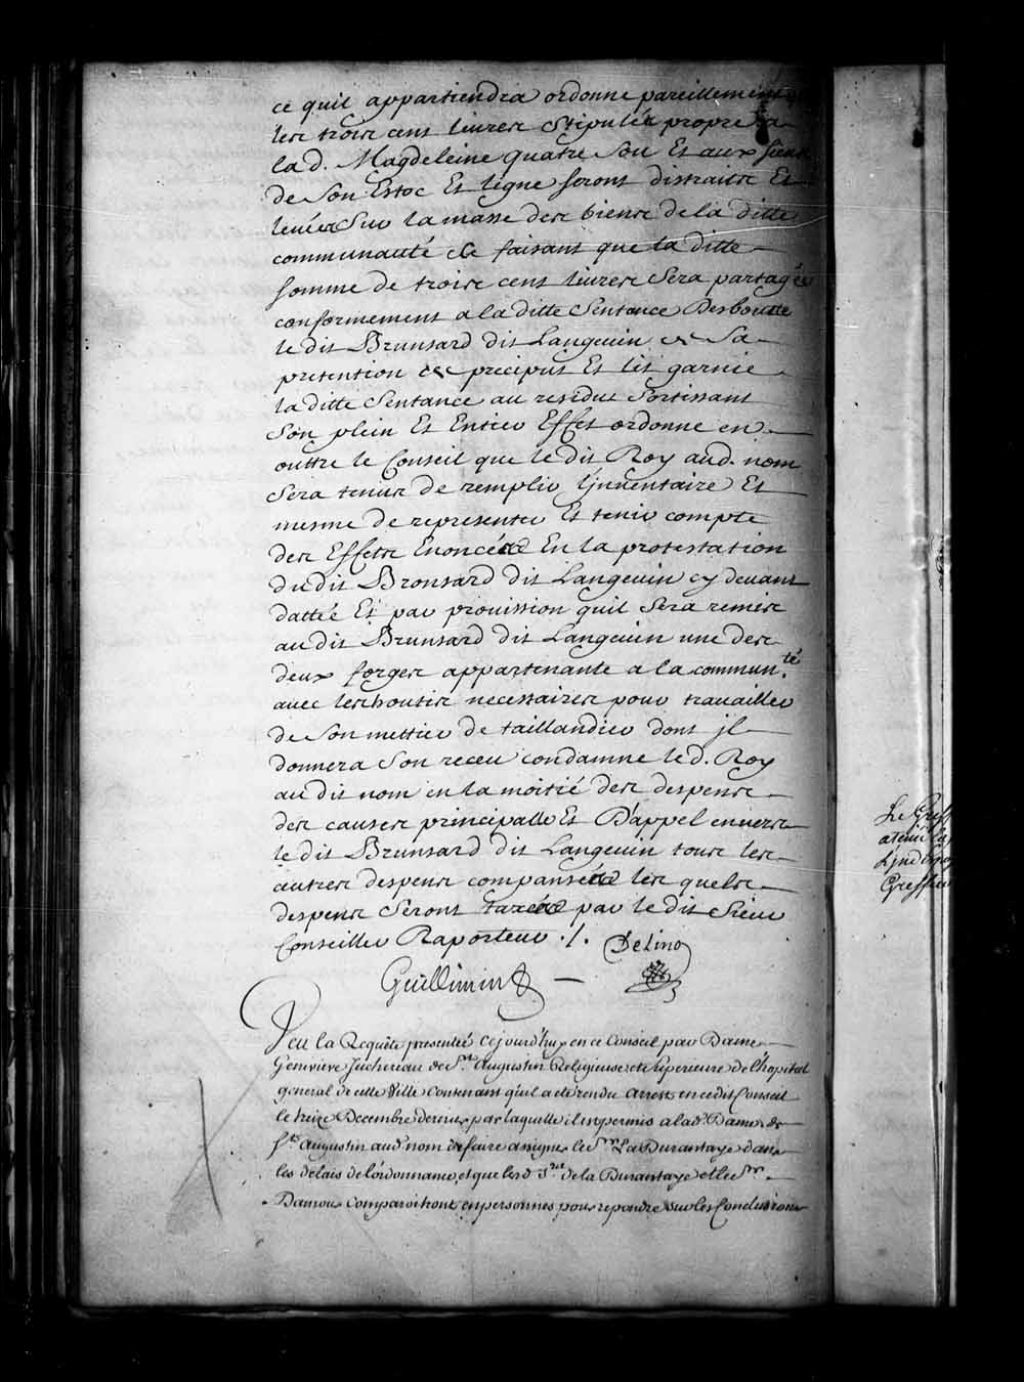 ce quil appartiendra ordonne pareillement q
les trois cens livres Stipulés propre a
la d. Magdeleine quatre Sou Et aux siens
de Son Estoc Et ligne seront distraits Et
levées Sur la masse des biens de la ditte
communauté Ce faisant que la ditte
somme de trois cens livres Sera partagée
conformement a la ditte Sentance Desboutte
le dit Brunsard dit Langevin de Sa
pretention de precipus Et lit garnie
la ditte Sentance au residut Sortissant
Son plein Et Entier Effet ordonne en
outtre le Conseil que le dit Roy aud. nom
Sera tenus de remplir l'jnventaire Et
mesme de representer Et tenir compte
des Effets Enoncées En la protestation
du dit Bronsard dit Langevin cy devant
dattée Et par provission quil Sera remis
au dit Brunsard dit Langevin une des
deux forges appartenante a la commun.té
avec les houtis necessaires pour travailler
de Son mettier de taillandier dont jl
donnera Son receu condamne le d. Roy
au dit nom en la moitié des despens
des causes principalle Et D'appel envers
le dit Brunsard dit Langevin tous les
autres despens compansées les quels
despens Seront taxées par le dit Sieur
Conseiller Raporteur ./. Delino
Guillimin
Veu la Requête presentée cejourd'huy en ce Conseil par Dame
Genevieve Juchereau de St Augustin Religieuse et Superieure de l'hopital
general de cette Ville Contenant qu'il a eté rendu Arrest en cedit Conseil
le treize Decembre dernier par laquelle il est permis a lad.e Dame de
St Augustin aud.t nom de faire assigner le Sr La Durantaye dans
les delais de l'ordonnance, et que lesd. Srs de la Durantaye et le Sr
Damour Comparoitront en personnes pour repondre sur les Conclusions
Le Greff
a tenu la
Greffier